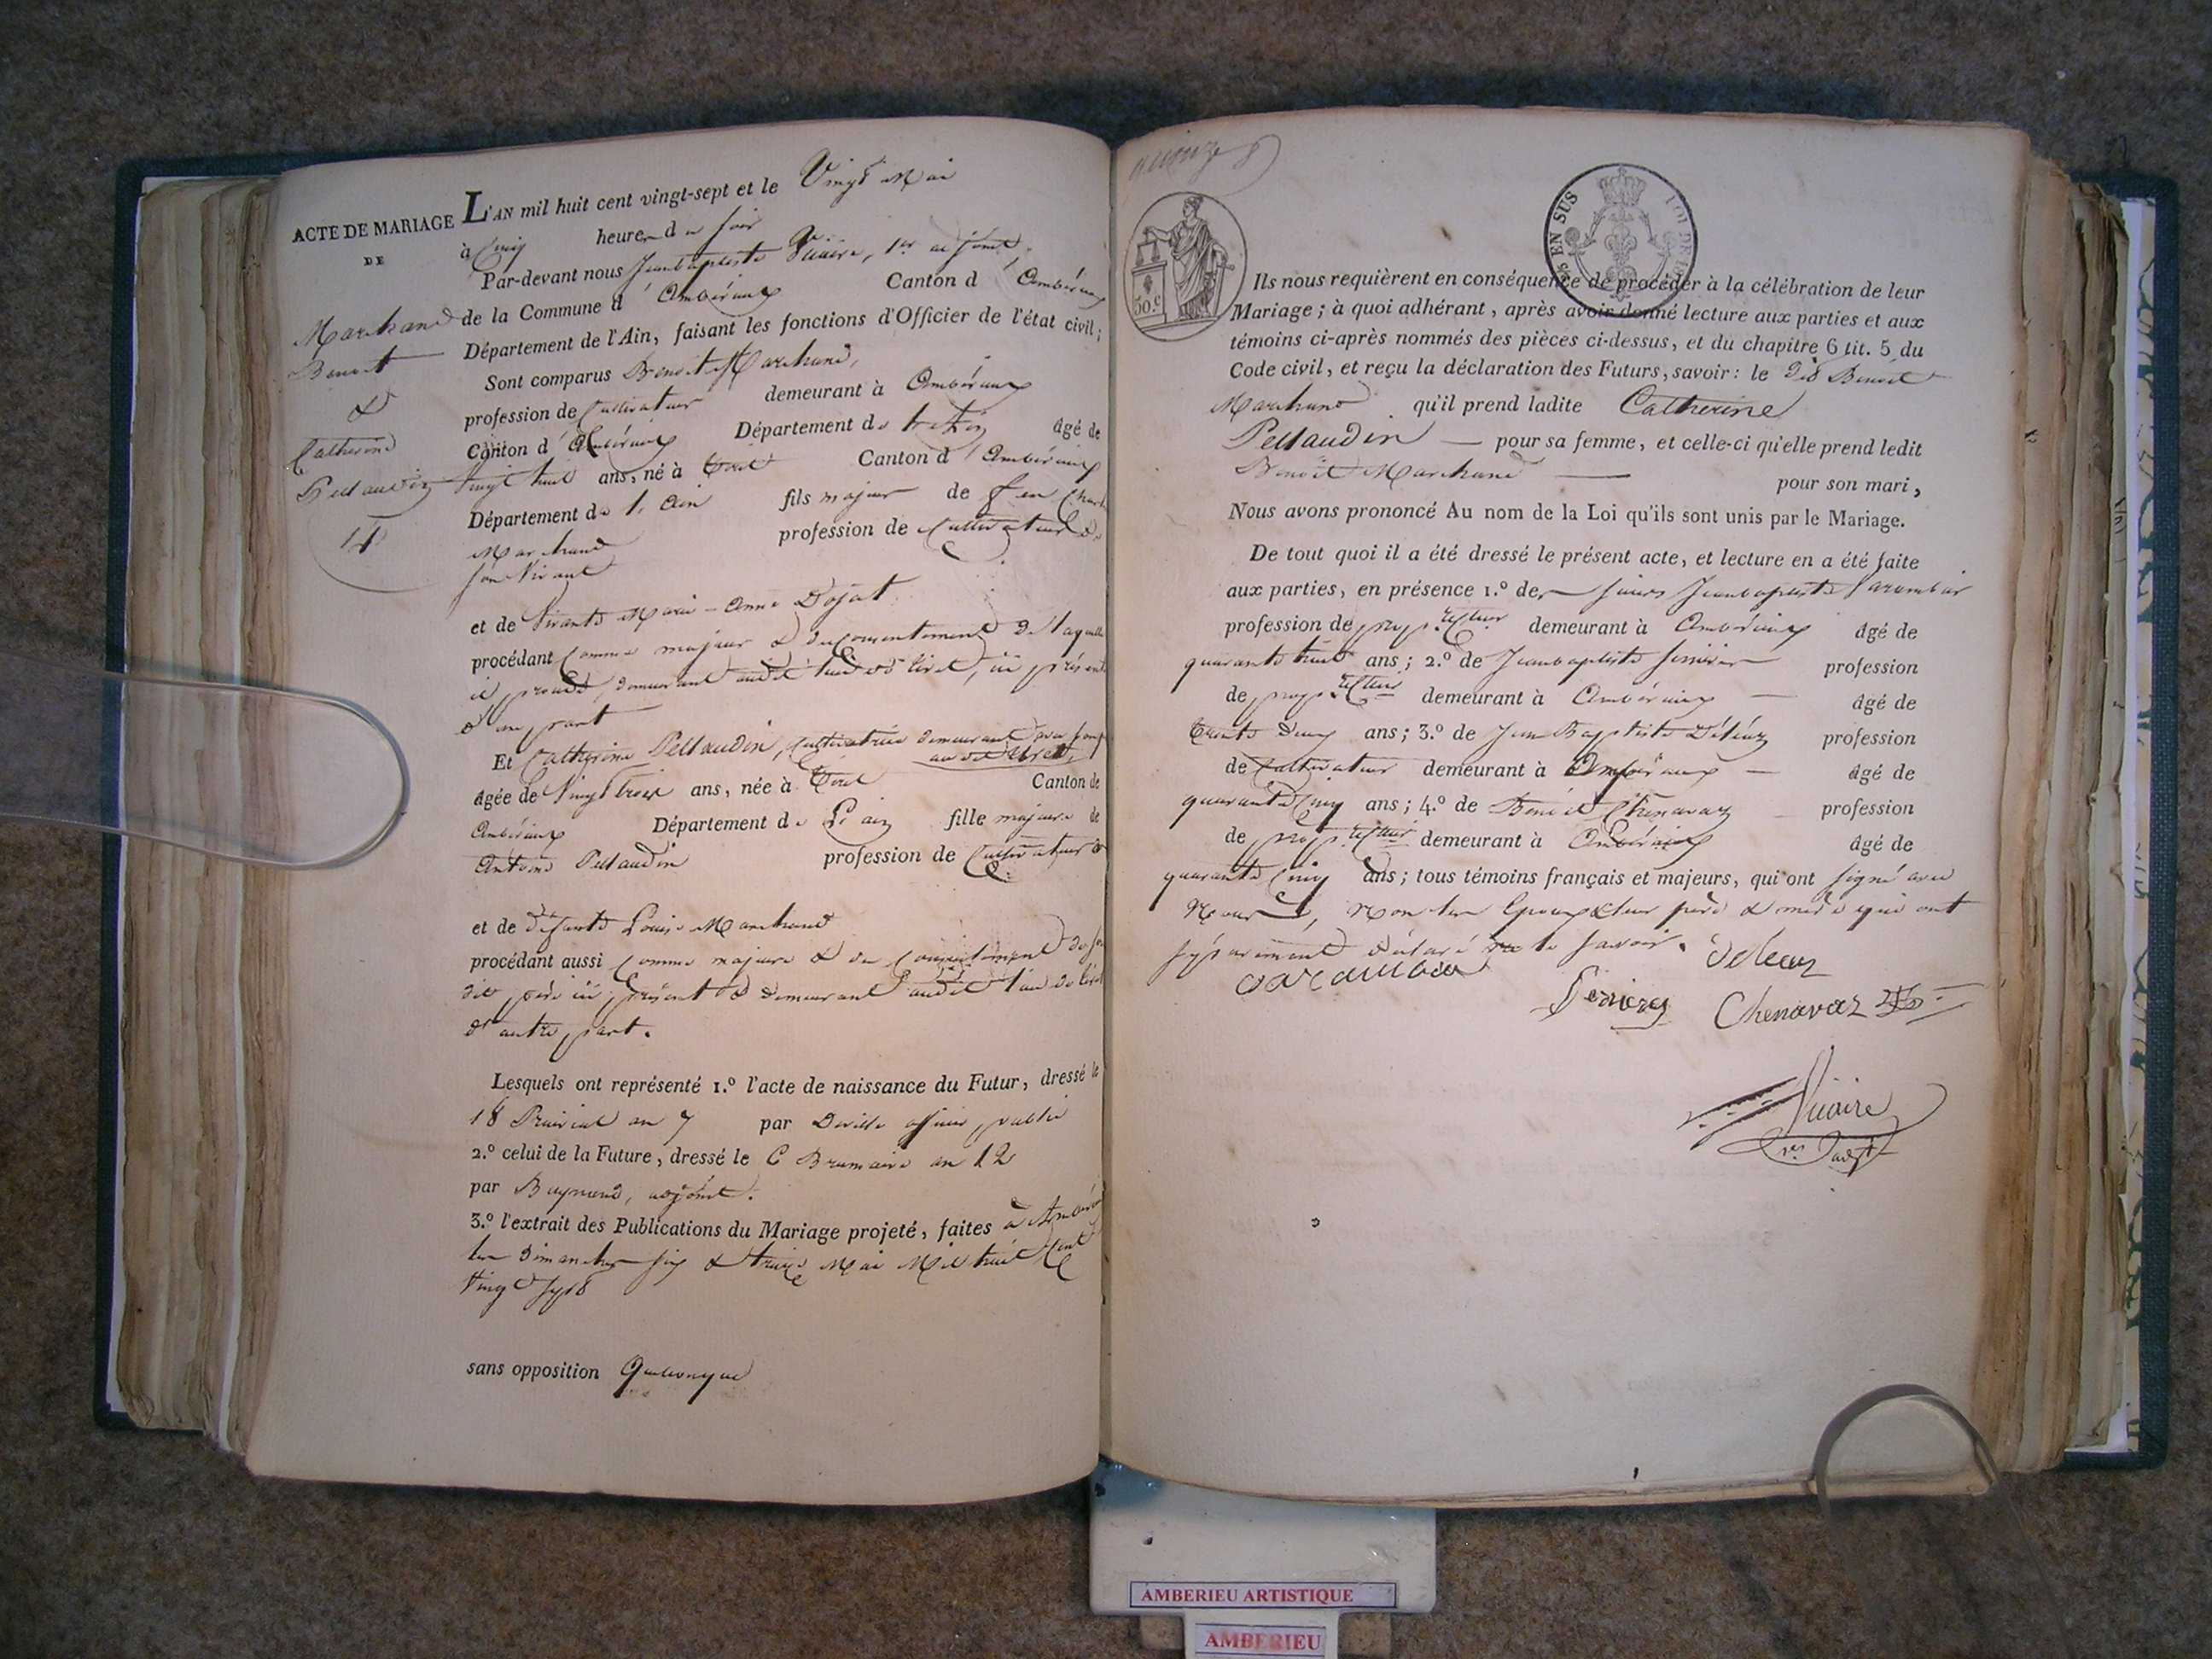 ACTE DE MARIAGE
DE
Marchand
Benoit
&
Catherine
Pellaudin
14
L'AN mil huit cent vingt-sept et le Vingt Mai
à Cinq heures du soir
Par-devant nous Jeanbaptiste Vicaire, 1er adjoint,
de la Commune d'Ambérieux Canton d'Ambérieux
Département de l'Ain, faisant les fonctions d'Officier de l'état civil;
Sont comparus Benoit Marchand,
profession de Cultivateur demeurant à Ambérieux
Canton d'Ambérieux Département de l'Ain âgé de
Vingt huit ans, né à Canton d'Ambérieux
Département de l'Ain fils majeur de feu
Marchand profession de Cultivateur de
son Vivant
et de Vivante Marie-Anne Dojat
procédant Comme majeur & du Consentement de laquelle
il procède, demeurant audit lieu de , ici présente
d'une part
Et Catherine Pellaudin, Cultivatrice demeurant
agée de Vingt trois ans, née à Canton de
Ambérieux Département de L'ain fille majeure de
Antoine Pellaudin profession de Cultivateur
et de défunte Louise Marchand
procédant aussi Comme majeure & du Consentement de son
dit père ici présent & demeurant audit lieu de
d'autre part.
Lesquels ont représenté 1.º l'acte de naissance du Futur, dressé le
18 Prairial an 7 par Deville officier public
2.º celui de la Future, dressé le 6 Brumaire an 12
par adjoint.
3.º l'extrait des Publications du Mariage projeté, faites à Ambérieux
les Dimanches six & treize Mai Mil huit Cent
Vingt sept
sans opposition Quelconque
30.c
EN SUS
Ils nous requièrent en conséquence de procéder à la célébration de leur
Mariage; à quoi adhérant, après avoir donné lecture aux parties et aux
témoins ci-après nommés des pièces ci-dessus, et du chapitre 6 tit. 5 du
Code civil, et reçu la déclaration des Futurs, savoir: le dit Benoit
Marchand qu'il prend ladite Catherine
Pellaudin pour sa femme, et celle-ci qu'elle prend ledit
Benoit Marchand pour son mari,
Nous avons prononcé Au nom de la Loi qu'ils sont unis par le Mariage.
De tout quoi il a été dressé le présent acte, et lecture en a été faite
aux parties, en présence 1.º des sieurs Jeanbaptiste
profession de demeurant à Ambérieux âgé de
quarante huit ans; 2.º de Jeanbaptiste profession
de demeurant à Ambérieux âgé de
trente deux ans; 3.º de Jean Baptiste profession
de Cultivateur demeurant à Ambérieux âgé de
quarante Cinq ans; 4.º de Benoit Chenavaz profession
de demeurant à Ambérieux âgé de
quarante Cinq ans; tous témoins français et majeurs, qui ont signé avec
Nous, non les Epoux & leur père & mère qui ont
séparément déclaré ne le savoir.
Chenavaz
Vicaire
1er adjt
AMBERIEU ARTISTIQUE
AMBERIEU